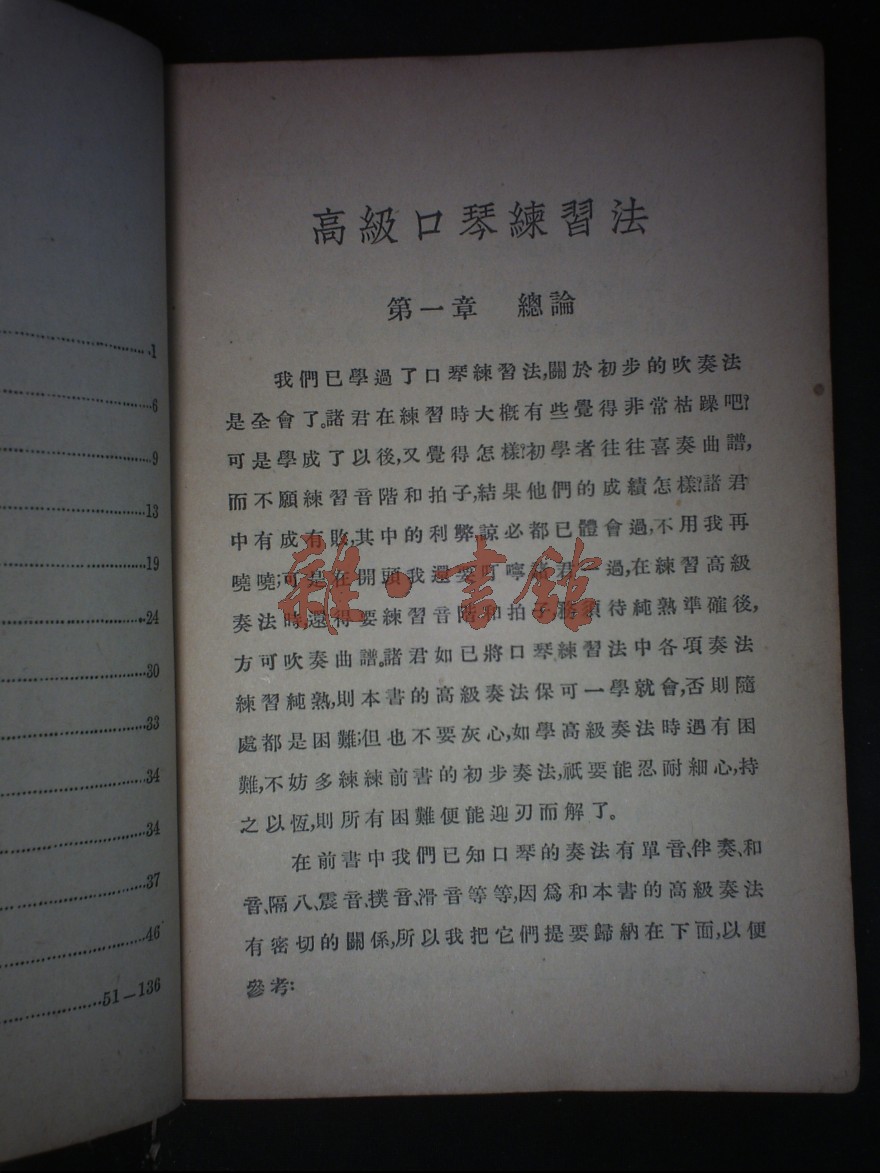 1
6
9
13
19
24
30
33
34
34
37
46
51—136
高級口琴練習法
第一章 總論
我們已學過了口琴練習法,關於初步的吹奏法
是全會了。諸君在練習時大槪有些覺得非常枯躁吧?
可是學成了以後,又覺得怎樣?初學者往往喜奏曲譜,
而不願練習音階和拍子,結果他們的成績怎樣?諸君
中有成有敗,其中的利弊諒必都已體會過,不用我再
嘵嘵;可是在開頭我還要叮嚀諸君一過,在練習高級
奏法時,還得要練習音階和拍子務須待純熟準確後,
方可吹奏曲譜。諸君如已將口琴練習法中各項奏法
練習純熟,則本書的高級奏法保可一學就會,否則隨
處都是困難;但也不要灰心,如學高級奏法時遇有困
難,不妨多練練前書的初步奏法,祇要能忍耐細心,持
之以恆,則所有困難便能迎刃而解了。
在前書中我們已知口琴的奏法有單音、伴奏、和
音、隔八、震音、撲音、滑音等等,因爲和本書的高級奏法
有密切的關係,所以我把它們提要歸納在下面,以便
參考:
雜·書館